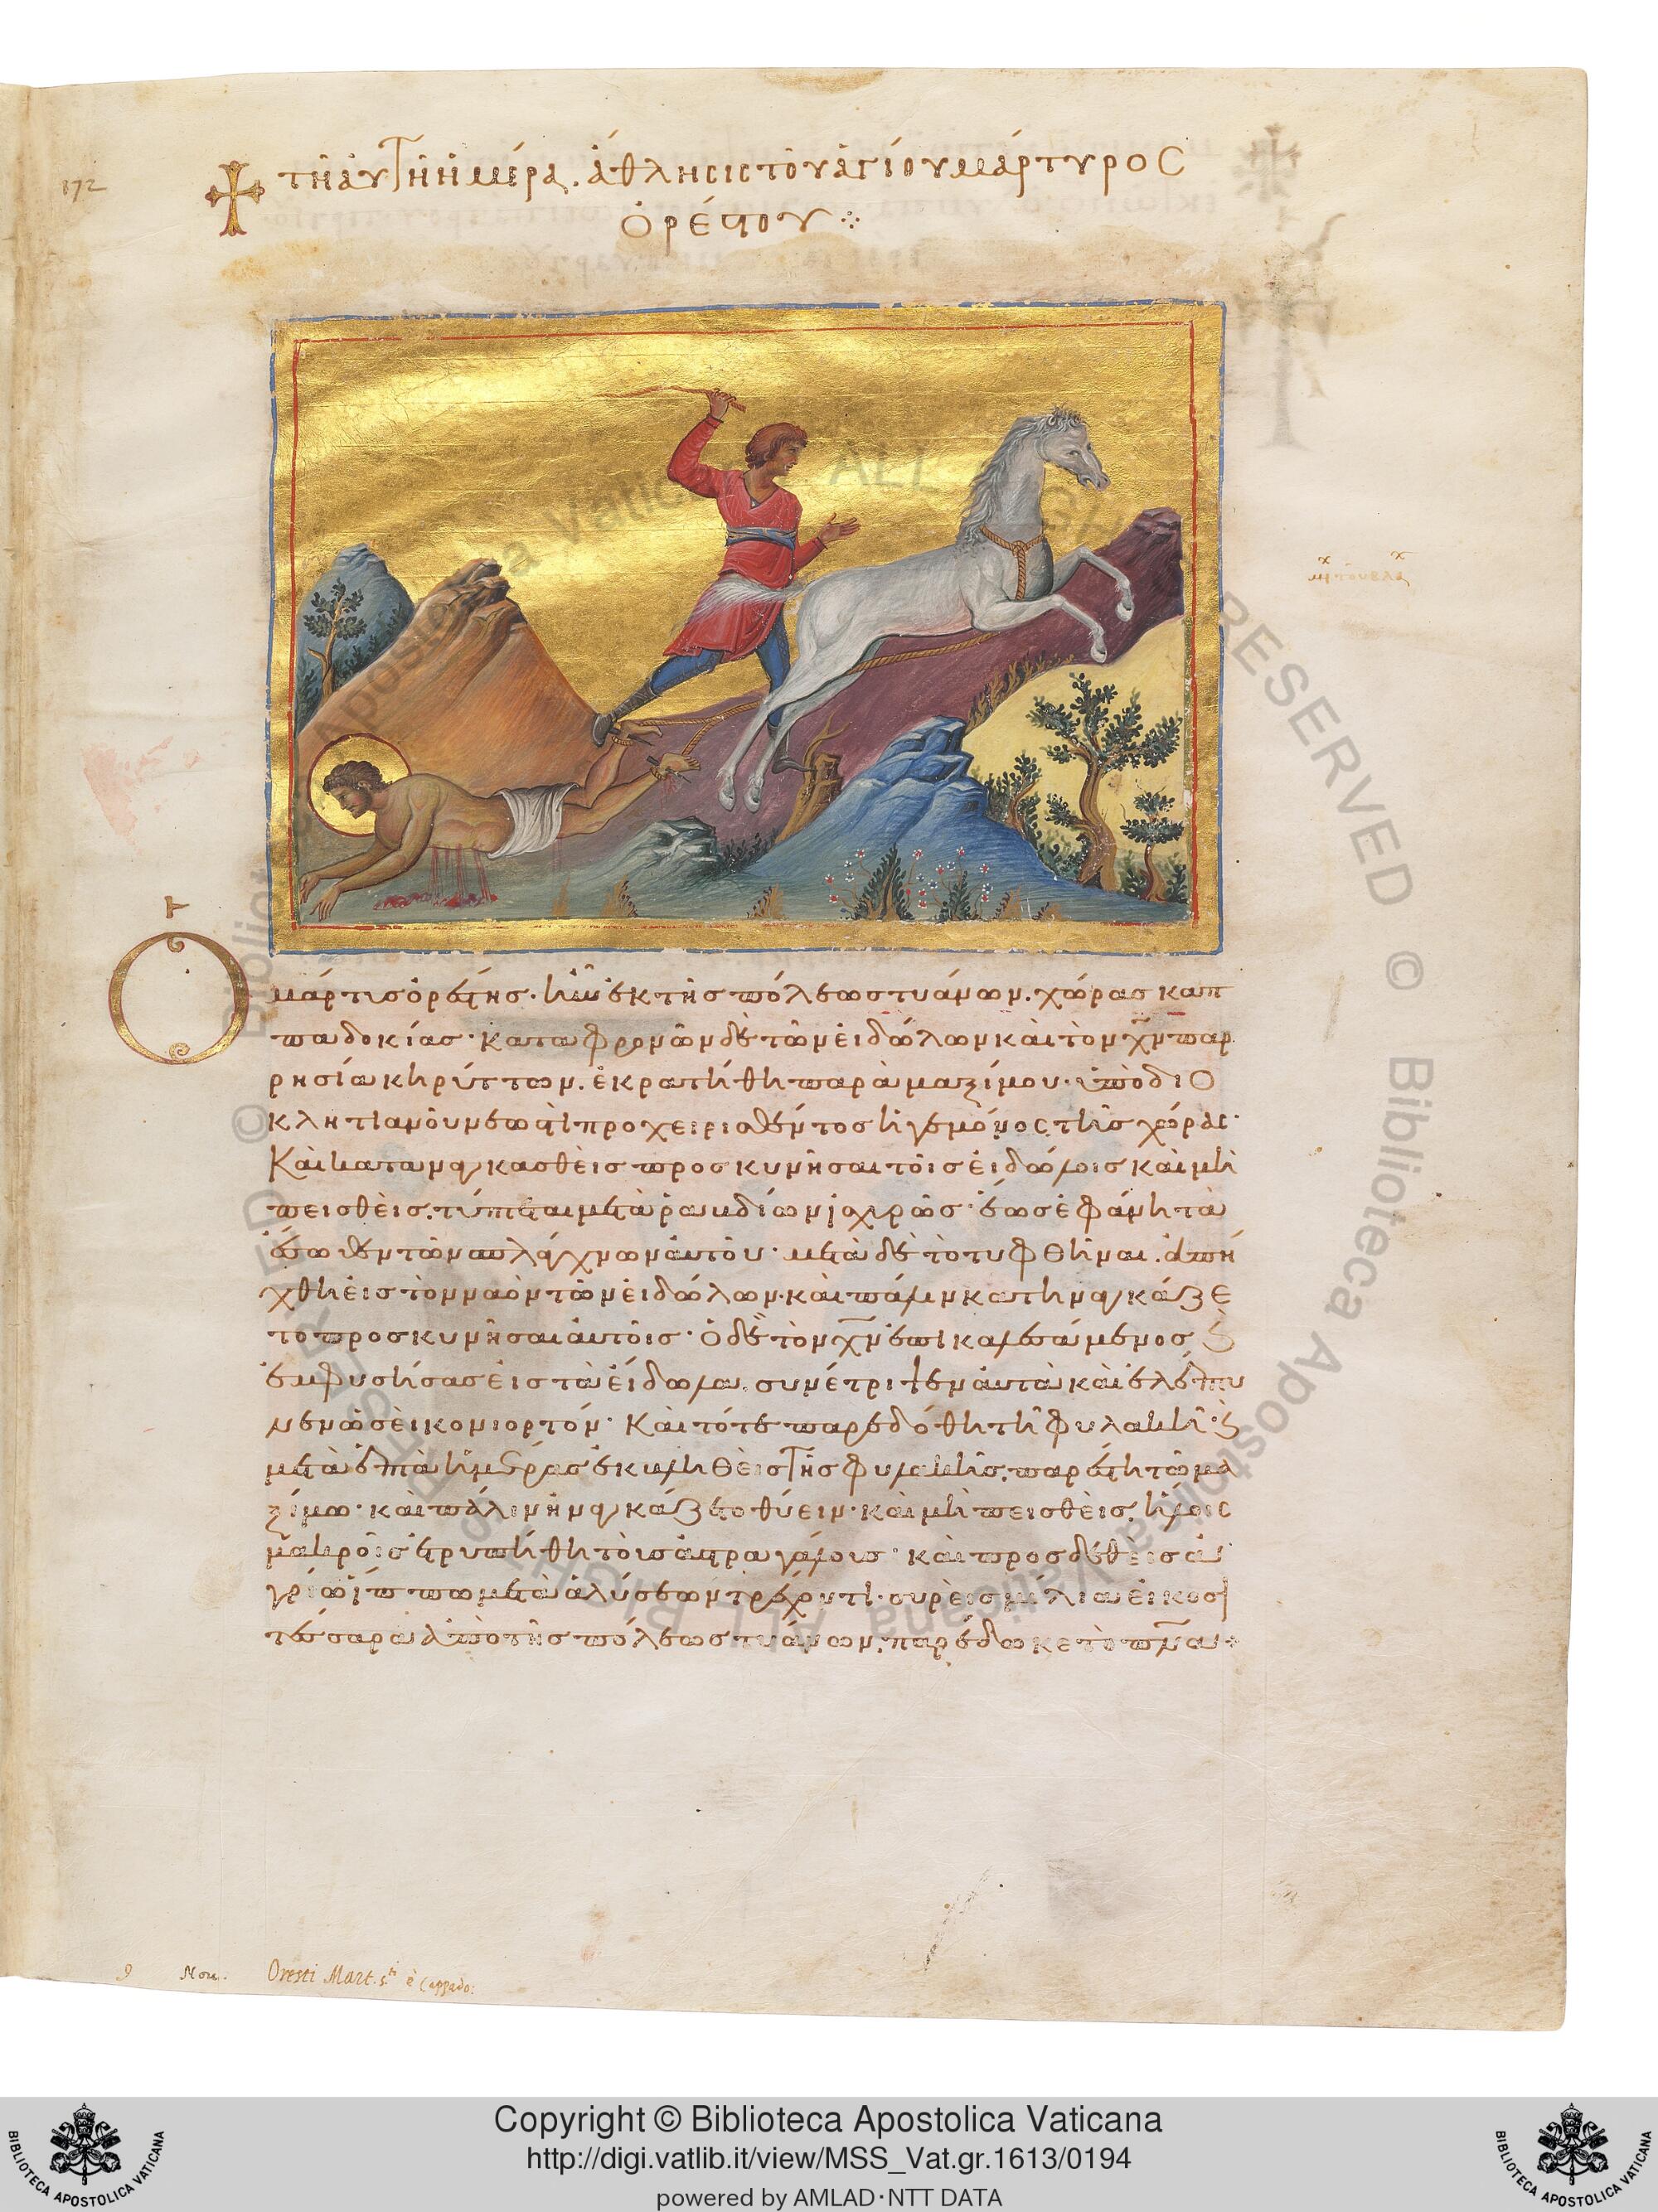 172
τῇ αὐτῇ ἡμέρᾳ. ἄθλησις τοῦ ἁγίου μάρτυρος
ὀρέστου
Ὁ
μάρτυς ὀρέστης· ἦν ἐκ τῆς πόλεως τυάνων. χώρας καπ
παδοκίας· καταφρονῶν δὲ τῶν εἰδώλων καὶ τὸν χν παρ
ρησία κηρύττων. ἐκρατήθη παρὰ μαξίμου· ὑπὸ διο
κλητιανοῦ νεωστὶ προχειρισθέντος ἡγεμόνος τῆς χώρας·
Καὶ καταναγκασθεὶς προσκυνῆσαι τοῖς εἰδώλοις καὶ μὴ
πεισθεὶς. τύπτεται μετὰ ραβδίων ἰσχυρῶς· ἕως ἐφάνη τὰ
ἔσωθεν τῶν σπλάγχνων αὐτοῦ· μετὰ δὲ τὸ τυφθῆναι. ἀπή
χθη εἰς τὸν ναὸν τῶν εἰδώλων· καὶ πάλιν κατηναγκάζε
το προσκυνῆσαι αὐτοῖς· Ὁ δὲ τὸν χν ἐπικαλεσάμενος ϗ
ἐμφυσήσας εἰς τὰ εἴδωλα. συνέτριψεν αὐτὰ καὶ ἐλέπτυ
νεν ὡσεὶ κονιορτόν· Καὶ τότε παρεδόθη τῇ φυλακῇ· ϗ
μετὰ ἑπτὰ ἡμέρας ἐκβληθεὶς τῆς φυλακῆς. παρέστη τῷ μα
ξίμω· καὶ πάλιν ἠναγκάζετο θύειν· καὶ μὴ πεισθεὶς. ἥλοις
μακροῖς ἐτρυπήθη τοῖς ἀστραγάλοις· καὶ προσδεθεὶς ἀ
γρίω ἵππω μετὰ ἁλύσεων τρέχοντι· συρεὶς μίλια εἴκοσι
τέσσαρα ἀπὸ τῆς πόλεως τυάνων. παρέδωκε τὸ πνα
9 Nou. Oresti Mart. s.ti è Cappado:
Copyright © Biblioteca Apostolica Vaticana
http://digi.vatlib.it/view/MSS_Vat.gr.1613/0194
powered by AMLAD·NTT DATA
BIBLIOTECA APOSTOLICA VATICANA
BIBLIOTECA APOSTOLICA VATICANA
© Biblioteca Apostolica Vaticana ALL RIGHTS RESERVED
© Biblioteca Apostolica Vaticana ALL RIGHTS RESERVED